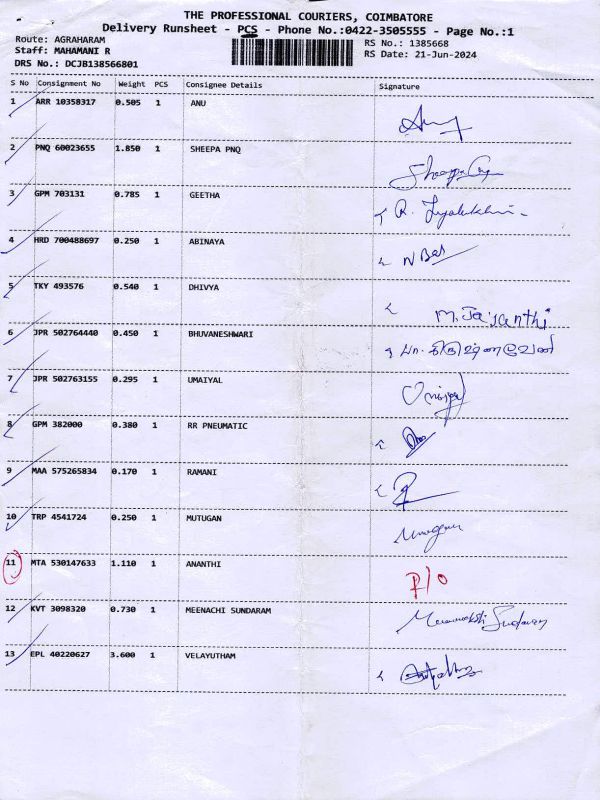 THE PROFESSIONAL COURIERS, COIMBATORE
Delivery Runsheet - PCS - Phone No.:0422-3505555 - Page No.:1
Route: AGRAHARAM
Staff: MAHAMANI R
DRS No.: DCJB138566801
RS No.: 1385668
RS Date: 21-Jun-2024
S No Consignment No Weight PCS Consignee Details Signature
1 ARR 10358317 0.505 1 ANU
2 PNQ 60023655 1.850 1 SHEEPA PNQ
3 GPM 703131 0.785 1 GEETHA
4 HRD 700488697 0.250 1 ABINAYA
5 TKY 493576 0.540 1 DHIVYA M. Jaisanthi
6 JPR 502764440 0.450 1 BHUVANESHWARI
7 JPR 502763155 0.295 1 UMAIYAL
8 GPM 382000 0.380 1 RR PNEUMATIC
9 MAA 575265834 0.170 1 RAMANI
10 TRP 4541724 0.250 1 MUTUGAN
11 MTA 530147633 1.110 1 ANANTHI P/O
12 KVT 3098320 0.730 1 MEENACHI SUNDARAM
13 EPL 40220627 3.600 1 VELAYUTHAM